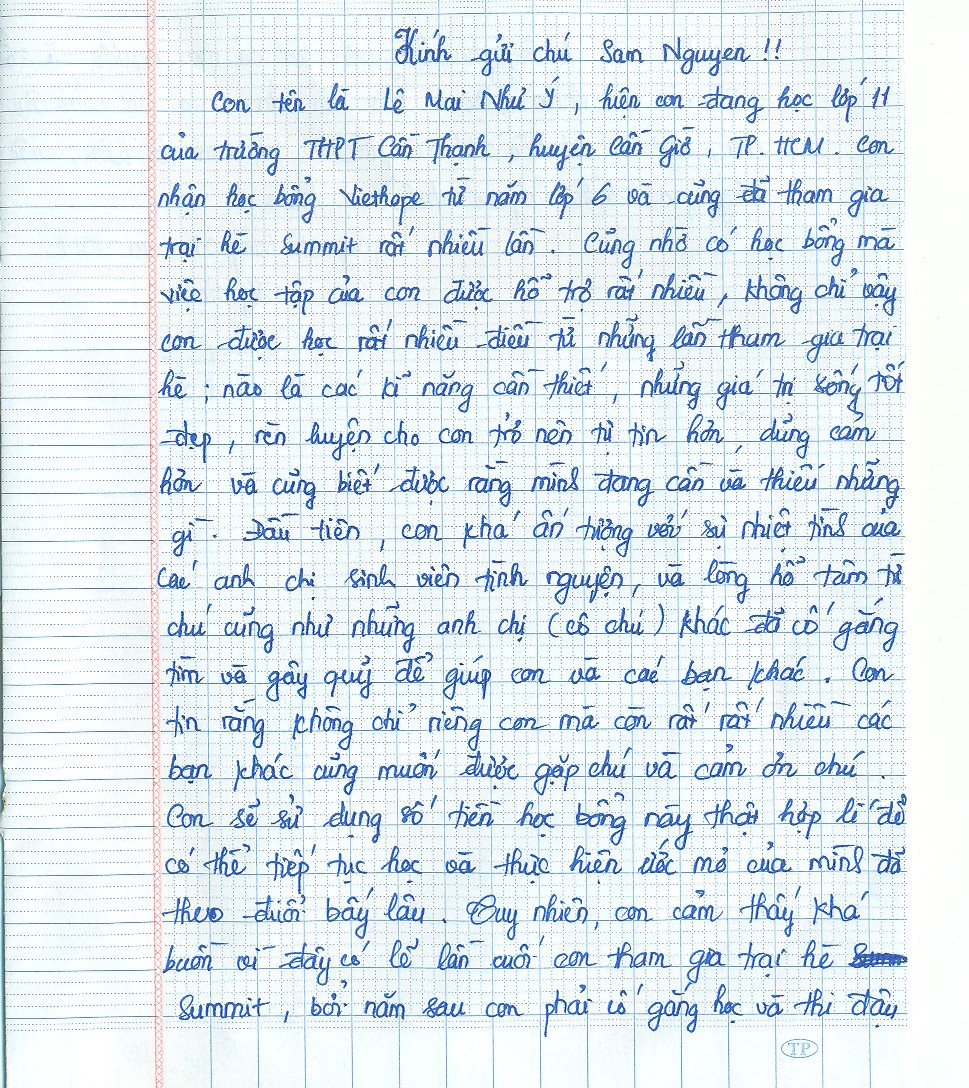 Kính gửi chú Sam Nguyen !!
Con tên là Lê Mai Như Ý, hiện con đang học lớp 11
của trường THPT Cần Thạnh, huyện Cần Giờ, TP. HCM. Con
nhận học bổng Viethope từ năm lớp 6 và cũng đã tham gia
trại hè Summit rất nhiều lần. Cũng nhờ có học bổng mà
việc học tập của con được hỗ trợ rất nhiều, không chỉ vậy
con được học rất nhiều điều từ những lần tham gia trại
hè; nào là các kĩ năng cần thiết, những giá trị sống tốt
đẹp, rèn luyện cho con trở nên tự tin hơn, dũng cảm
hơn và cũng biết được rằng mình đang cần và thiếu những
gì. Đầu tiên, con khá ấn tượng với sự nhiệt tình của
các anh chị sinh viên tình nguyện, và lòng hổ tâm từ
chú cũng như những anh chị (cô chú) khác đã cố gắng
tìm và gây quỹ để giúp con và các bạn khác. Con
tin rằng không chỉ riêng con mà còn rất rất nhiều các
bạn khác cũng muốn được gặp chú và cảm ơn chú.
Con sẽ sử dụng số tiền học bổng này thật hợp lí để
có thể tiếp tục học và thực hiện ước mơ của mình đã
theo đuổi bấy lâu. Tuy nhiên, con cảm thấy khá
buồn vì đây có lẽ lần cuối con tham gia trại hè
Summit, bởi năm sau con phải cố gắng học và thi đậu
TP